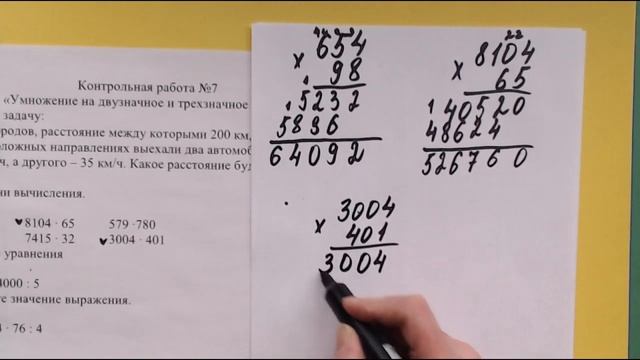 Контрольная работа №7
«Умножение на двузначное и трехзначное
задачу:
ородов, расстояние между которыми 200 км,
оложных направлениях выехали два автомоб
ч, а другого – 35 км/ч. Какое расстояние буд
ни вычисления.
8104 · 65 579 ·780
7415 · 32 3004 · 401
уравнения
4000 : 5
те значение выражения.
4 · 76 : 4
654
× 98
5232
5896
64092
22
8104
× 65
1
40520
48624
526760
3004
× 401
3004